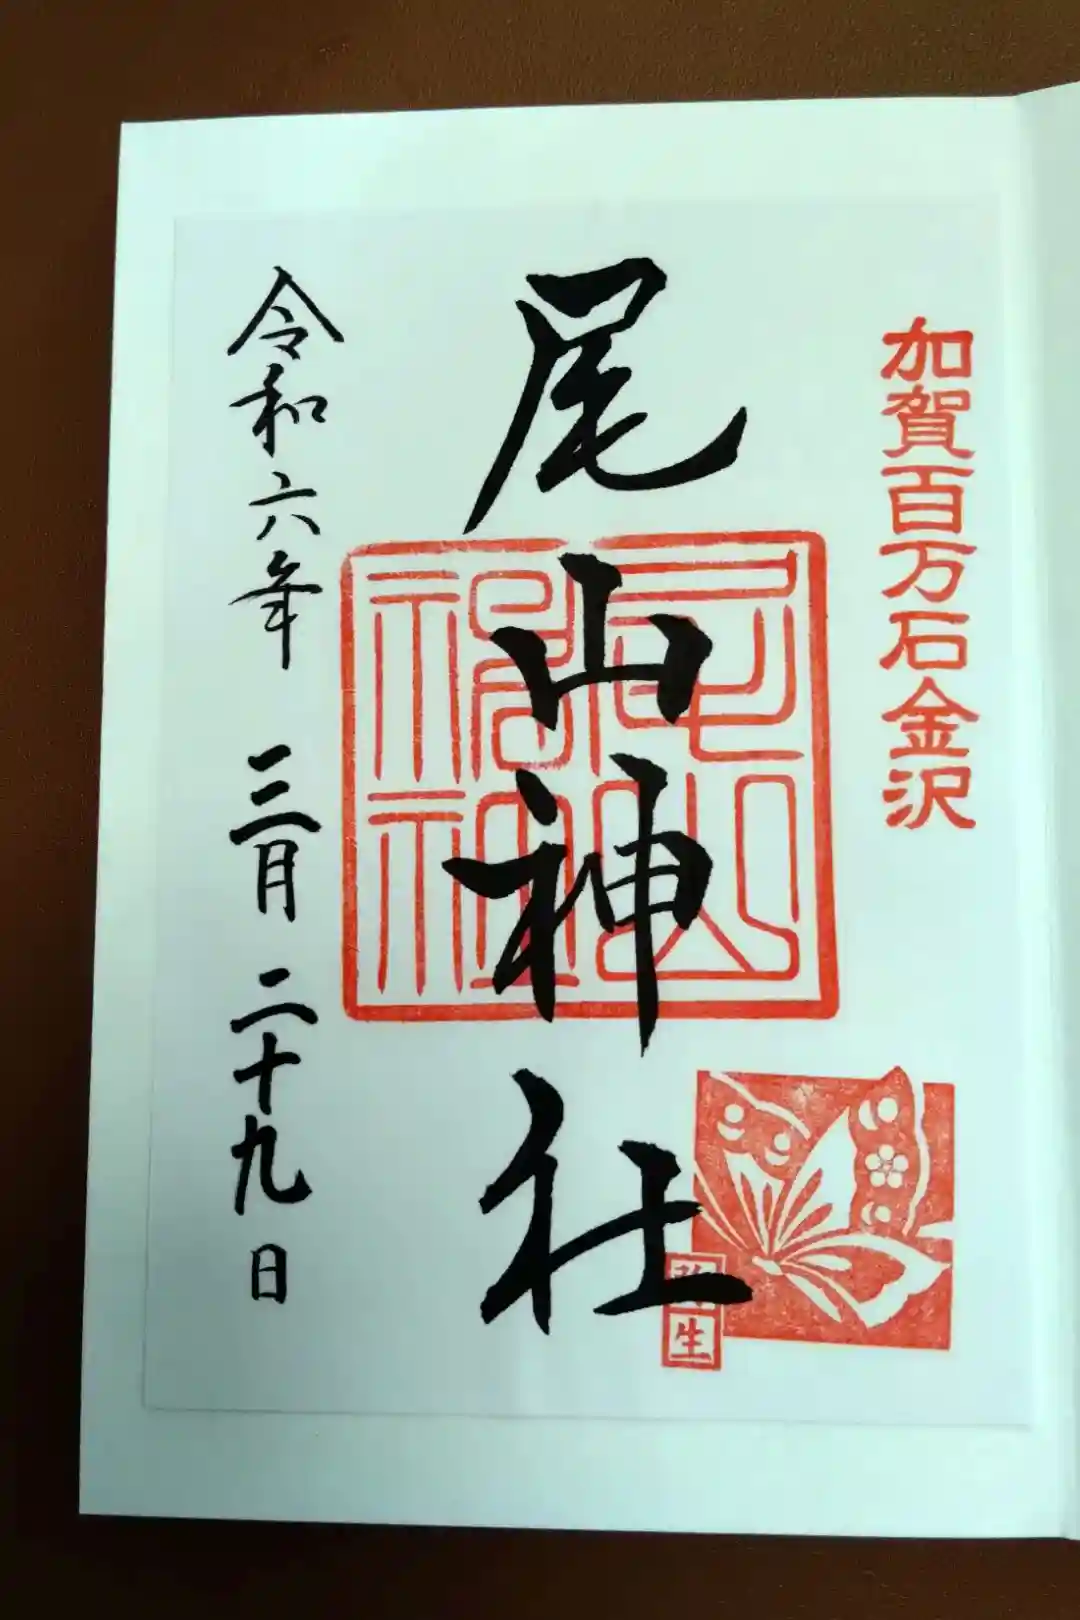 加賀百万石金沢
尾山神社
尾山神社
弥生
令和六年 三月 二十九日